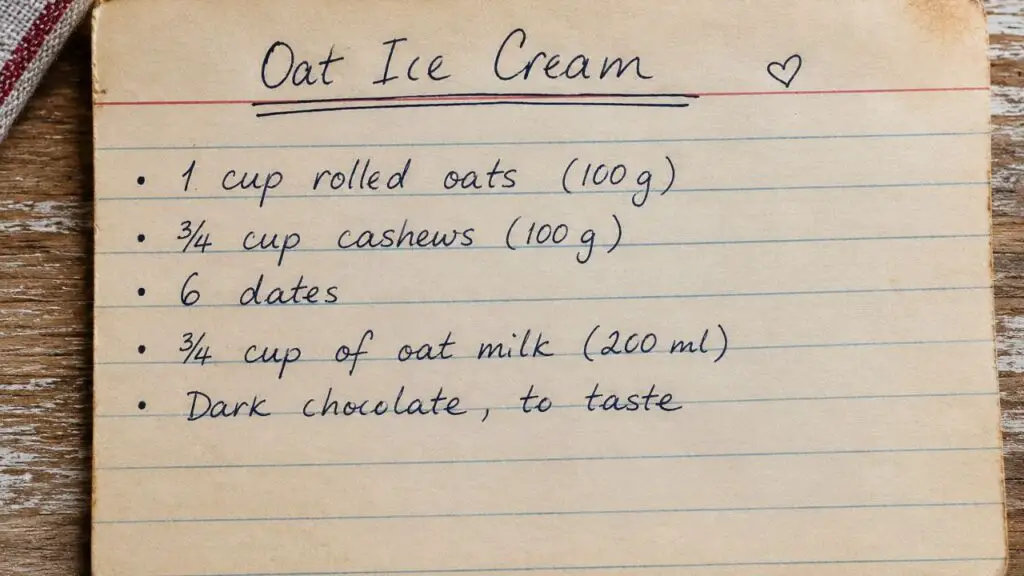 Oat Ice Cream ♡
• 1 cup rolled oats (100 g)
• 3/4 cup cashews (100 g)
• 6 dates
• 3/4 cup of oat milk (200 ml)
• Dark chocolate, to taste